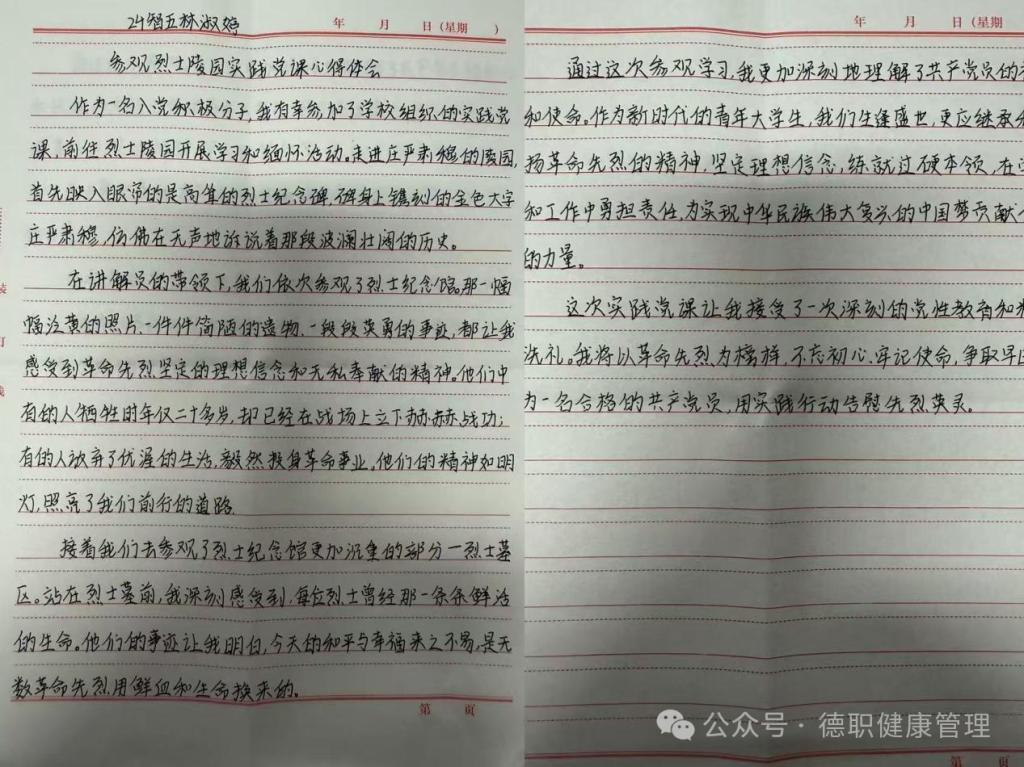 24智五林淑婷
年 月 日（星期 ）
参观烈士陵园实践党课心得体会
作为一名入党积极分子,我有幸参加了学校组织的实践党
课，前往烈士陵园开展学习和缅怀活动。走进庄严肃穆的陵园,
首先映入眼帘的是高耸的烈士纪念碑,碑身上镌刻的金色大字
庄严肃穆,仿佛在无声地诉说着那段波澜壮阔的历史。
在讲解员的带领下,我们依次参观了烈士纪念馆。那一幅
幅泛黄的照片.一件件简陋的遗物.一段段英勇的事迹，都让我
感受到革命先烈坚定的理想信念和无私奉献的精神。他们中
有的人牺牲时年仅二十多岁，却已经在战场上立下赫赫战功;
有的人放弃了优渥的生活,毅然投身革命事业。他们的精神如明
灯,照亮了我们前行的道路
接着我们去参观了烈士纪念馆更加沉重的部分一烈士墓
区。站在烈士墓前,我深刻感受到,每位烈士曾经那一条条鲜活
的生命。他们的事迹让我明白,今天的和平与幸福来之不易,是无
数革命先烈用鲜血和生命换来的。
第 页
装
订
线
年 月 日（星期
通过这次参观学习,我更加深刻地理解了共产党员的
和使命。作为新时代的青年大学生，我们生逢盛世,更应继承
扬革命先烈的精神，坚定理想信念,练就过硬本领,在
和工作中勇担责任,为实现中华民族伟大复兴的中国梦贡献
的力量。
这次实践党课让我接受了一次深刻的党性教育和
洗礼。我将以革命先烈为榜样，不忘初心.牢记使命，争取早
为一名合格的共产党员，用实践行动告慰先烈英灵。
公众号·德职健康管理
第 页